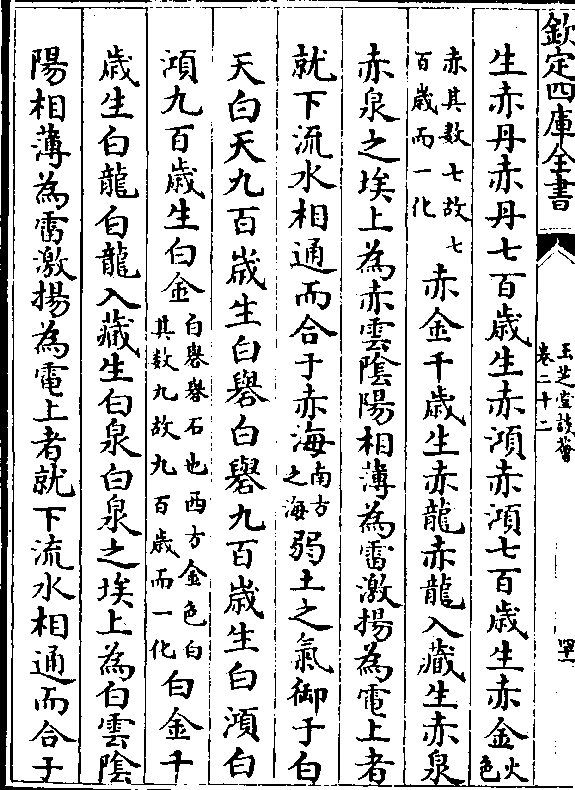 欽定四庫全書
玉芝堂談薈
卷二十二
生赤丹赤丹七百歲生赤澒赤澒七百歲生赤金火色
赤其數七故七百歲而一化赤金千歲生赤龍赤龍入藏生赤泉
赤泉之埃上為赤雲陰陽相薄為雷激揚為電上者
就下流水相通而合于赤海南方之海弱土之氣御于白
天白天九百歲生白礜白礜九百歲生白澒白
澒九百歲生白金白礜礜石也西方金色白其數九故九百歲而一化白金千
歲生白龍白龍入藏生白泉白泉之埃上為白雲陰
陽相薄為雷激揚為電上者就下流水相通而合于